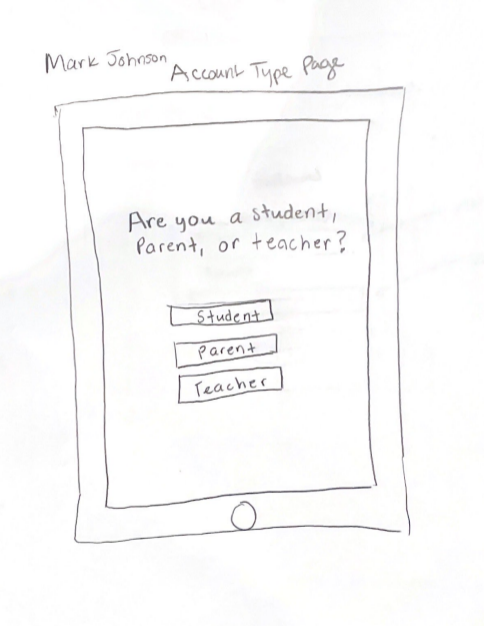 Mark Johnson
Account Type Page
Are you a student,
Parent, or teacher?
Student
Parent
Teacher